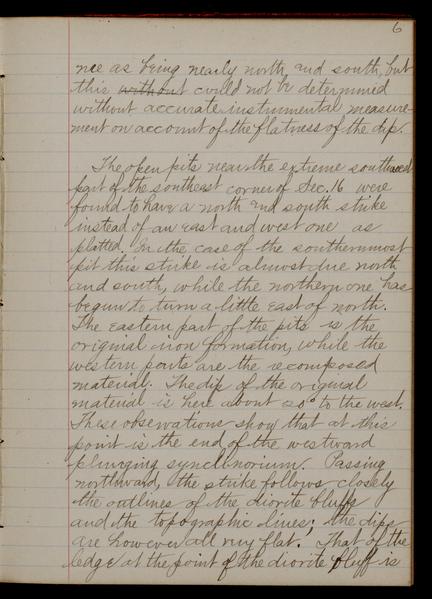 6
nee as being nearly north and south, but
this without could not be determined
without accurate instrumental measure-
ment on account of the flatness of the dip.
The open pits near the extreme southward
part of the southeast corner of Sec. 16 were
found to have a north and south strike
instead of an east and west one as
plotted. In the case of the southernmost
pit this strike is almost due north
and south, while the northern one has
begun to turn a little east of north.
The eastern part of the pits is the
original iron formation, while the
western parts are the recomposed
material. The dip of the original
material is here about 20° to the west.
These observations show that at this
point is the end of the westward
plunging synclinorium. Passing
northward, the strike follows closely
the outlines of the diorite bluffs
and the topographic lines; the dips
are however all very flat. That of the
ledge at the point of the diorite bluff is